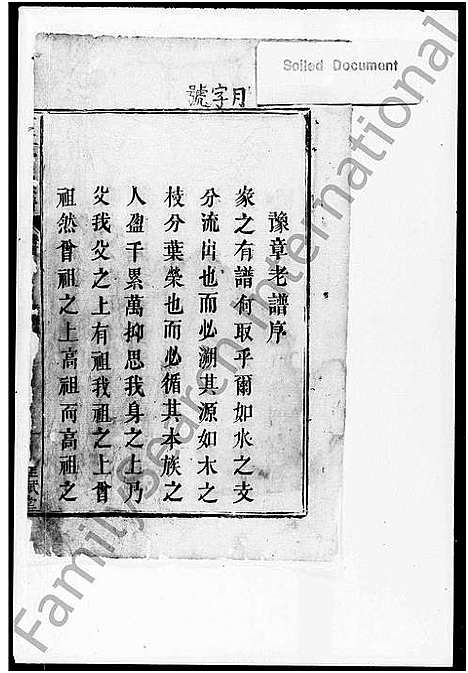 Soiled Document
月字號
豫章老譜序
家之有譜何取乎爾如水之支
分流出也而必溯其源如木之
枝分葉榮也而必循其本族之
人盈千累萬抑思我身之上乃
父我父之上有祖我祖之上曾
祖然曾祖之上高祖而高祖之
Familysearch International